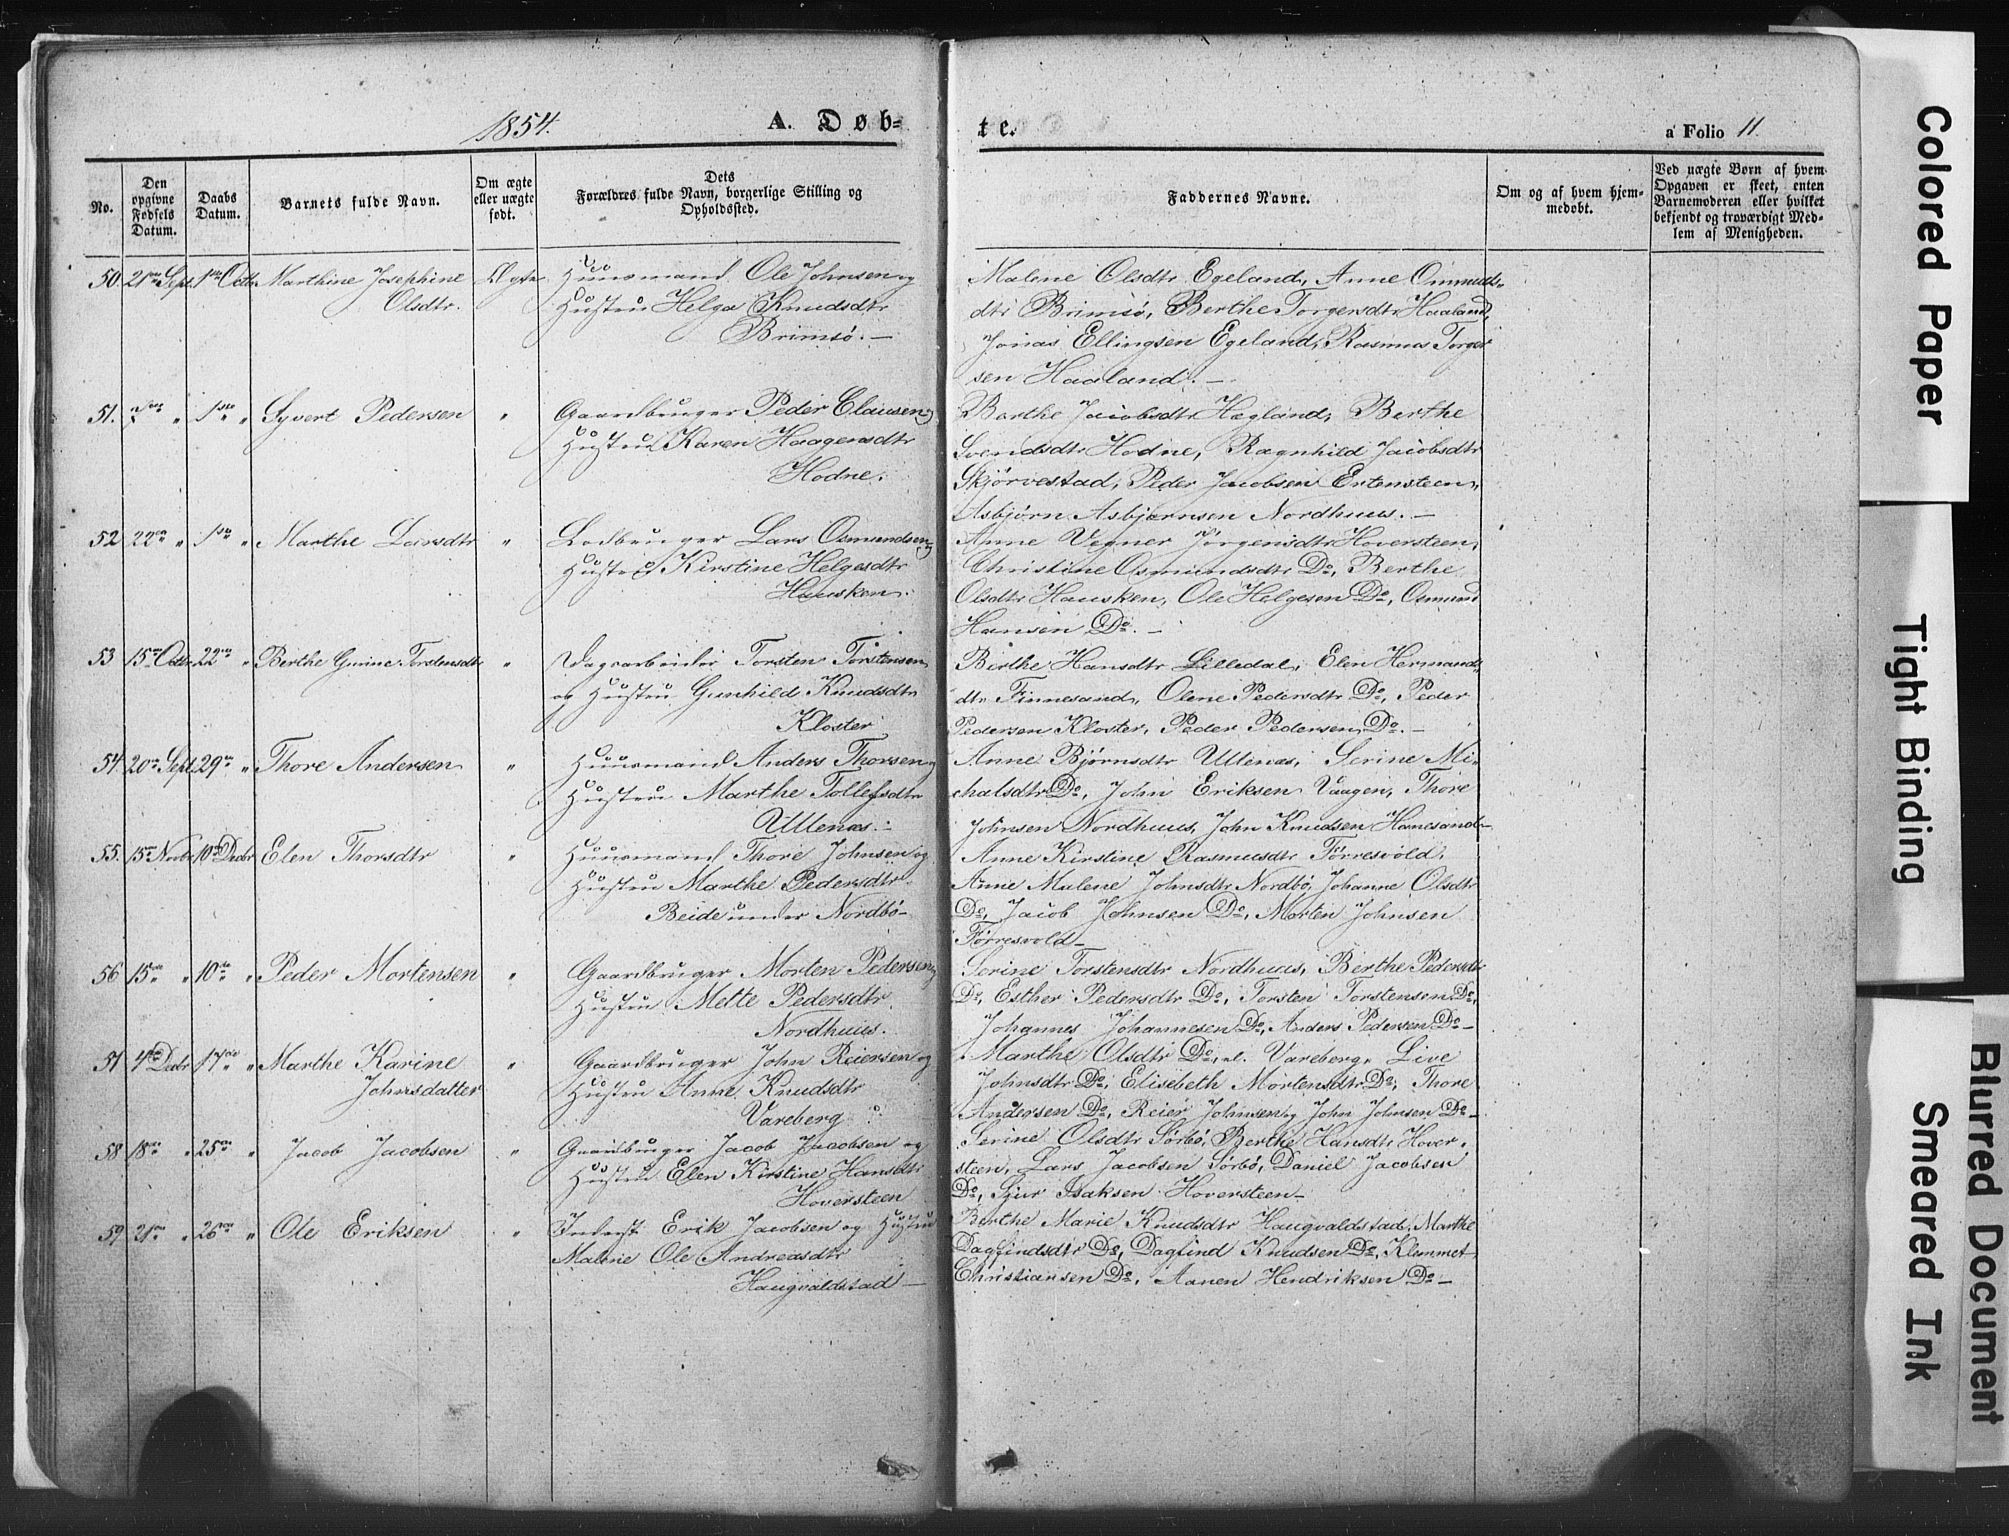 1854. A. Døb-
te.
a Folio 11.
No.
Den opgivne Fødsels Datum.
Daabs Datum.
Barnets fulde Navn.
Om ægte eller uægte født.
Dets Forældres fulde Navn, borgerlige Stilling og Opholdssted.
Faddernes Navne.
Om og af hvem hjemmedøbt.
Ved uægte Børn af hvem Opgaven er skeet, enten Barnemoderen eller hvilket bekjendt og troværdigt Medlem af Menigheden.
50. 21de Sept. 1ste Octbr Marthine Josephine Ægte Huusmand Ole Johnsen og
Olsdtr. Hustru Helga Knudsdtr
Brimsø. —
Malene Olsdtr Egeland, Anne Ommunds-
dtr Brimsø, Berthe Torgersdtr Haaland,
Jonas Ellingsen Egeland, Rasmus Torger
sen Haaland. —
51. " 1ste " Syvert Pedersen " Gaardbruger Peder Clausen og
Hustru Karen Haagensdtr
Hodne.
Barthe Jacobsdtr Hegland, Berthe
Svendsdtr Hodne, Ragnhild Jacobsdtr
Skjørvestad, Peder Jacobsen Ertensteen,
Asbjørn Asbjørnsen Nordhuus. —
52 22de " 1ste " Marthe Larsdtr " Lodbruger Lars Osmundsen og
Hustru Kirstine Helgesdtr
Hausken.
Anne Vegner Jørgensdtr Hoversteen,
Christine Osmundsdtr Do, Berthe
Olsdtr Hausken, Ole Helgesen Do, Osmund
Hansen Do. —
53 15de Octbr 22de " Berthe Gurine Torstensdtr " Dagsarbeider Torsten Torstensen
og Hustru Gunhild Knudsdtr
Kloster
Birthe Hansdtr Lilledal, Elen Hermands-
dtr Finnesand, Olene Pedersdtr Do, Peder
Pedersen Kloster, Peder Pedersen Do. —
54 20de Sept. 29de " Thore Andersen " Huusmand Anders Thorsen og
Hustru Marthe Tollefsdtr
Uttenæs. —
Anne Bjørnsdtr Uttenæs, Serine Mi-
chalsdtr Do, John Eriksen Vaagen, Thore
Johnsen Nordhuus, John Knudsen Hanesand —
55. 15de Novbr 10de Decbr Elen Thorsdtr " Huusmand Thore Johnsen og
Hustru Marthe Pedersdtr
Beide under Nordbø —
Anne Kirstine Rasmusdtr Førresvold,
Anne Malene Johnsdtr Nordbø, Johanne Olsdtr
Do, Jacob Johnsen Do, Morten Johnsen
Førresvold —
56 15de " 10de " Peder Mortensen " Gaardbruger Morten Pedersen og
Hustru Mette Pedersdtr
Nordhuus.
Serine Torstensdtr Nordhuus, Berthe Pedersdtr
Do, Esther Pedersdtr Do, Torsten Torstensen Do,
Johannes Johannesen Do, Anders Pedersen Do —
57 4de Decbr 17de " Marthe Karine " Gaardbruger John Reiersen og
Johnsdatter Hustru Anne Knudsdtr
Vareberg
Marthe Olsdtr Do, el. Vareberg, Live
Johnsdtr Do, Elisebeth Mortensdtr Do, Thore
Andersen Do, Reier Johnsen og John Johnsen Do —
58 18de " 25de " Jacob Jacobsen " Gaardbruger Jacob Jacobsen og
Hustru Elen Kirstine Hansdtr
Hoversteen
Serine Olsdtr Sørbø, Berthe Hansdtr Hover-
steen, Lars Jacobsen Sørbø, Daniel Jacobsen
Do, Sjur Isaksen Hoversteen —
59 21de " 26de " Ole Eriksen " Inderst Erik Jacobsen og Hustru
Malene Ole Andreasdtr
Haugvaldstad —
Birthe Marie Knudsdtr Haugvaldstad, Marthe
Dagfindsdtr Do, Dagfind Knudsen Do, Klemmet
Christiansen Do, Aanen Hendriksen Do —
Colored Paper
Tight Binding
Blurred Document
Smeared Ink